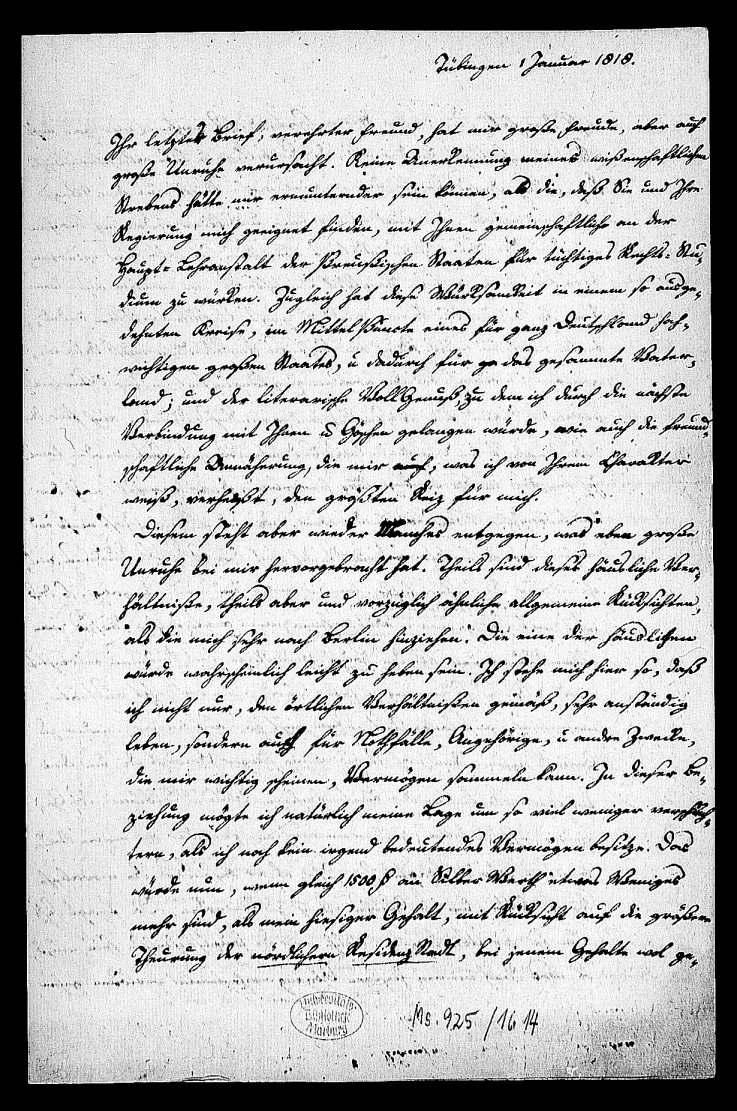 Tübingen 1 Januar 1818.
Ihr letztes Brief, verehrter Freund, hat mir große Freude, aber auch
große Unruhe verursacht. Keine Anerkennung meines wißenschaftlichen
Strebens hätte mir ermunternder sein können, als die, daß Sie und Ihre
Regierung mich geeignet finden, mit Ihnen gemeinschaftlich an der
Haupt-Lehranstalt der Preußischen Staaten für tüchtiges Rechts-Stu-
dium zu würken. Zugleich hat diese Würksamkeit in einem so ausge-
dehnten Kreise, im MittelPuncte eines für ganz Deutschland hoch-
wichtigen großen Staates, u dadurch für das gesammte Vater-
land; und der literarische VollGenuß, zu dem ich durch die nächste
Verbindung mit Ihnen u Göschen gelangen würde, wie auch die freund-
schaftliche Annäherung, die mir, was ich von Ihrem Charakter
weiß, verheißt, den größten Reiz für mich.
Diesem steht aber wieder Manches entgegen, was eben große
Unruhe bei mir hervorgebracht hat. Theils sind dieses häusliche Ver-
hältniße, theils aber und vorzüglich ähnliche allgemeine Rücksichten,
als die mich sehr nach Berlin hinziehen. Die eine der häuslichen
würde wahrscheinlich leicht zu heben sein. Ich stehe mich hier so, daß
ich nicht nur, den örtlichen Verhältnißen gemäß, sehr anständig
leben, sondern auch für Nothfälle, Angehörige, u andre Zwecke,
die mir wichtig scheinen, Vermögen sammeln kann. In dieser Be-
ziehung mögte ich natürlich meine Lage um so viel weniger verschlech-
tern, als ich noch kein irgend bedeutendes Vermögen besitze. Das
würde nun, wenn gleich 1500 an Silber Werth etwas Weniges
mehr sind, als mein hiesiger Gehalt, mit Rücksicht auf die größere
Theurung der nördlichern ResidenzStadt, bei jenem Gehalte wol ge-
Universitäts-
Bibliothek
Marburg
Ms. 925/1614